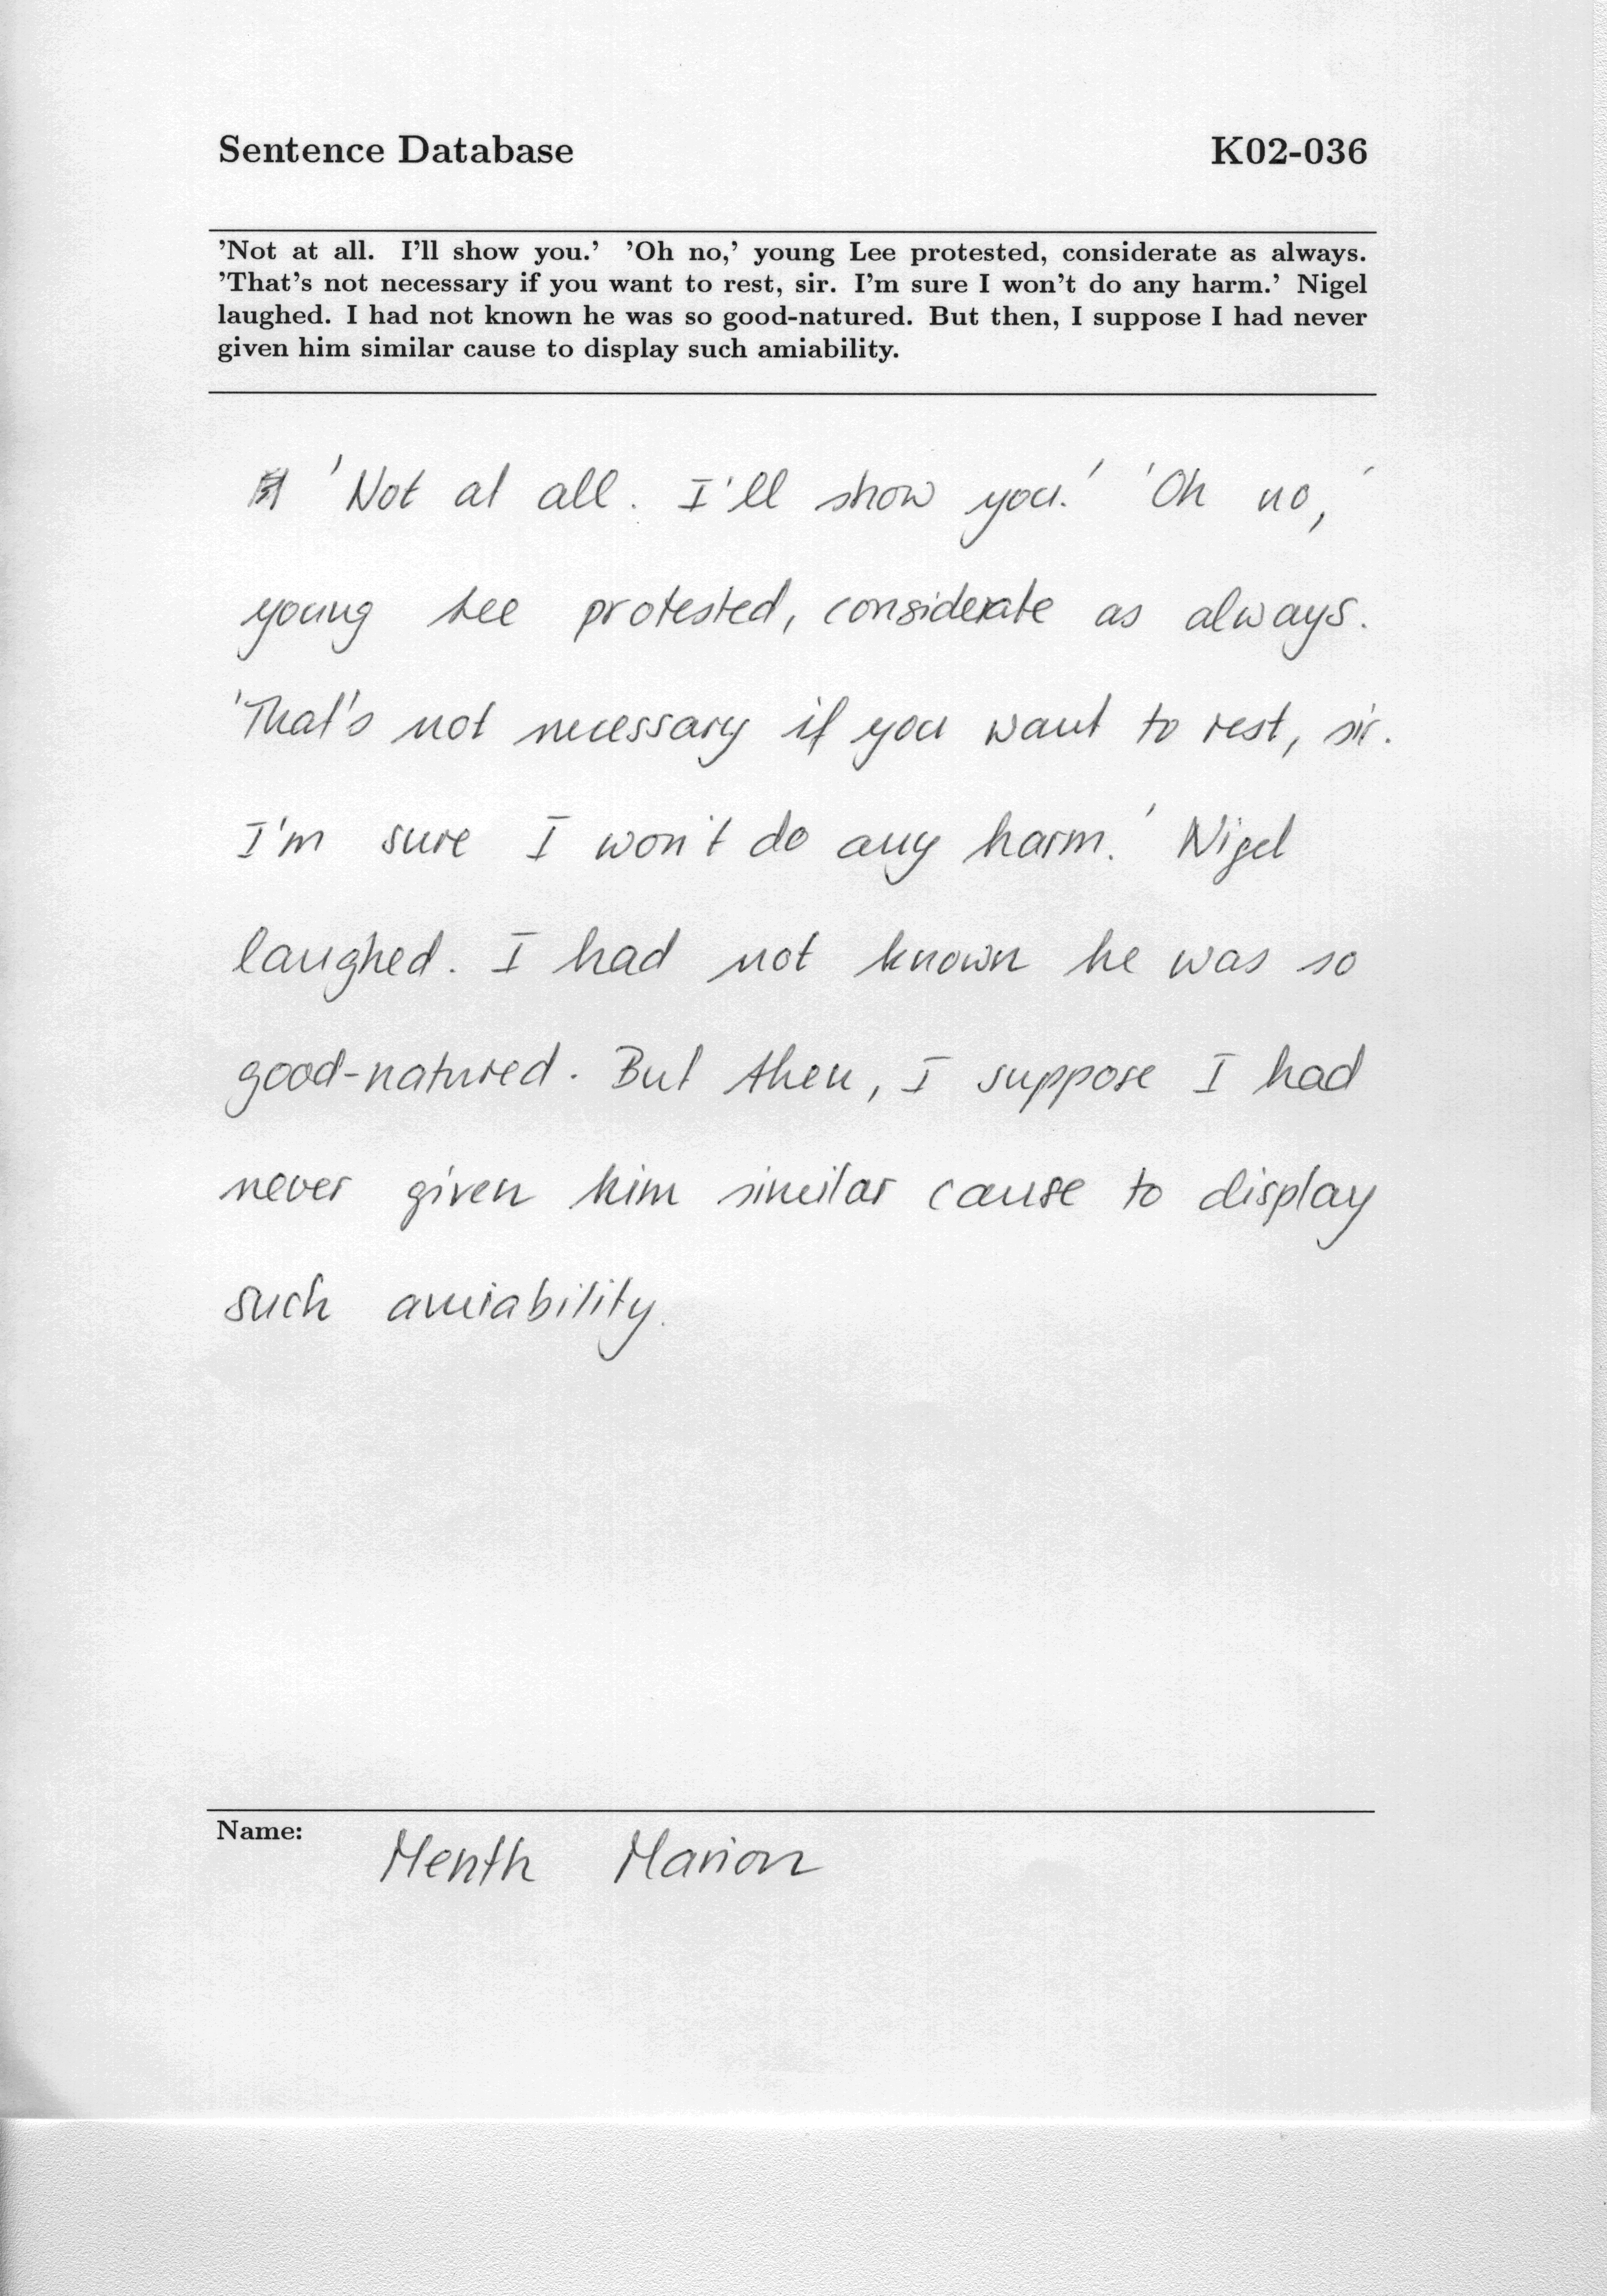 Sentence Database K02-036
'Not at all. I'll show you.' 'Oh no,' young Lee protested, considerate as always.
'That's not necessary if you want to rest, sir. I'm sure I won't do any harm.' Nigel
laughed. I had not known he was so good-natured. But then, I suppose I had never
given him similar cause to display such amiability.
'Not at all. I'll show you.' 'Oh no,'
young Lee protested, considerate as always.
'That's not necessary if you want to rest, sir.
I'm sure I won't do any harm.' Nigel
laughed. I had not known he was so
good-natured. But then, I suppose I had
never given him similar cause to display
such amiability.
Name: Menth Marion